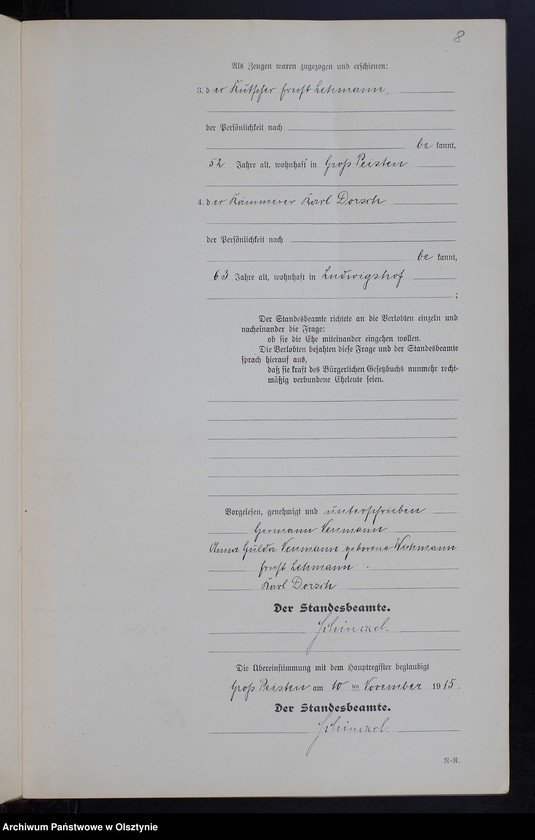 8
Als Zeugen waren zugezogen und erschienen:
3. der Kutscher Ernst Lehmann
der Persönlichkeit nach
be kannt,
52 Jahre alt, wohnhaft in Groß Peisten
4. der Kämmerer Karl Dorsch
der Persönlichkeit nach
be kannt,
63 Jahre alt, wohnhaft in Ludwigshof
;
Der Standesbeamte richtete an die Verlobten einzeln und
nacheinander die Frage:
ob sie die Ehe miteinander eingehen wollen.
Die Verlobten bejahten diese Frage und der Standesbeamte
sprach hierauf aus,
daß sie kraft des Bürgerlichen Gesetzbuchs nunmehr recht-
mäßig verbundene Eheleute seien.
Vorgelesen, genehmigt und unterschrieben
Hermann Neumann
Anna Hulda Neumann geborene
Ernst Lehmann
Karl Dorsch
Der Standesbeamte.
Schinkel
Die Übereinstimmung mit dem Hauptregister beglaubigt
Groß Peisten am 10 ten November 1915.
Der Standesbeamte.
Schinkel
N-R.
Archiwum Państwowe w Olsztynie